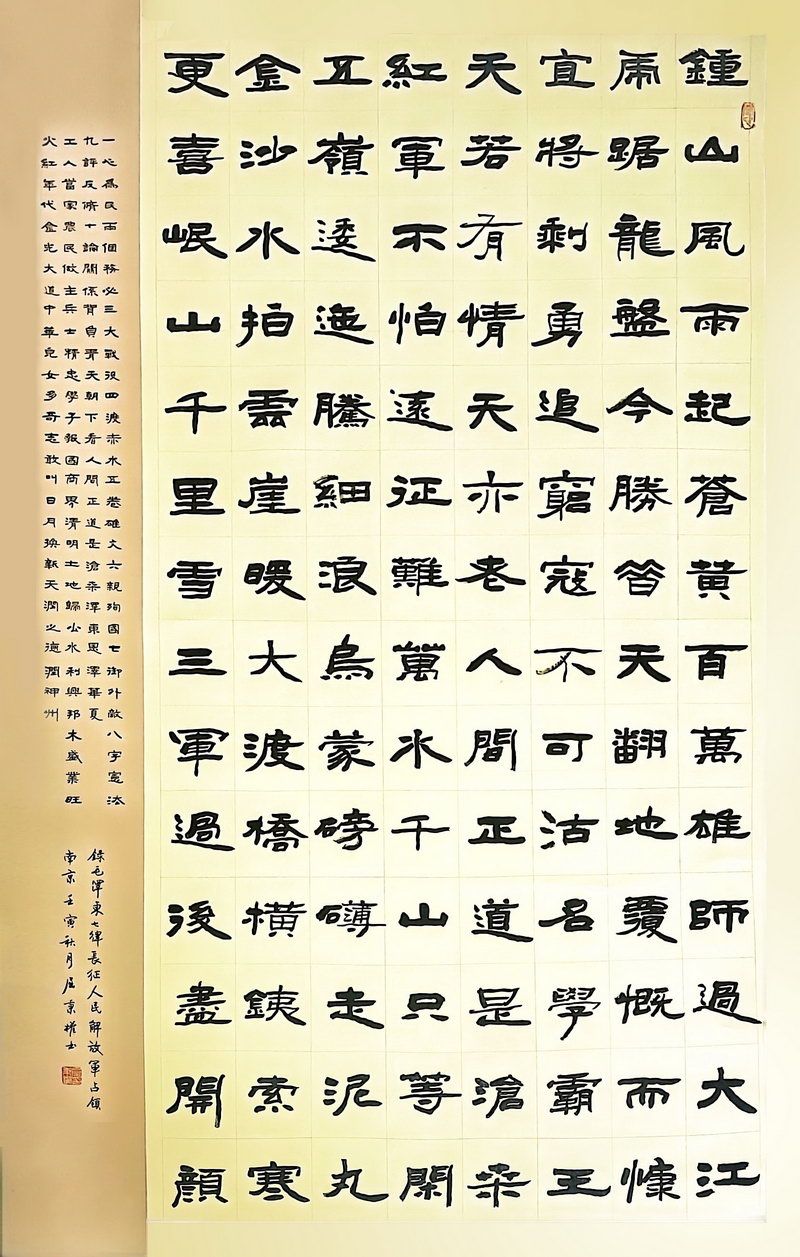 鍾山風雨起蒼黄百萬雄師過大江
虎踞龍盤今勝昔天翻地覆慨而慷
宜將剩勇追窮寇不可沽名學霸王
天若有情天亦老人間正道是滄桑
紅軍不怕遠征難萬水千山只等閑
五嶺逶迤騰細浪烏蒙磅礴走泥丸
金沙水拍雲崖暖大渡橋橫銕索寒
更喜岷山千里雪三軍過後盡開顔
一心為民兩個務必三大戰役四渡赤水五卷雄文六親殉國七御外敵八字憲法
九評反修十論關係背負青天朝下看人間正道是滄桑澤東恩澤華夏
工人當家農民做主兵士精忠學子報國商界清明土地歸公水利興邦木盛業旺
火紅年代金光大道中華兒女多奇志敢叫日月換新天潤之德潤神州
錄毛澤東七律長征人民解放軍占領
南京壬寅秋月